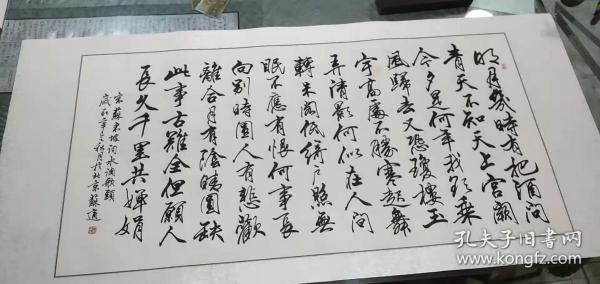 明月幾時有把酒問
青天不知天上宫闕
今夕是何年我欲乘
風歸去又恐瓊樓玉
宇高處不勝寒起舞
弄清影何似在人间
轉朱閣低綺户照無
眠不應有恨何事長
向别時圓人有悲歡
離合月有陰晴圓缺
此事古難全但願人
長久千里共嬋娟
宋蘇東坡詞水调歌頭
歲在辛巳秋月於北京蘇適
孔夫子旧书网
www.kongfz.com